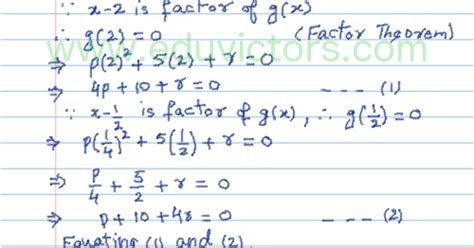 ∵ x-2 is factor of g(x)
∴ g(2) = 0 (Factor Theorem)
www.eduvictors.com
⇒ p(2)² + 5(2) + r = 0
⇒ 4p + 10 + r = 0 --- (1)
∵ x - 1/2 is factor of g(x), ∴ g(1/2) = 0
⇒ p(1/4)² + 5(1/2) + r = 0
⇒ p/4 + 5/2 + r = 0
⇒ p + 10 + 4r = 0 --- (2)
Equating (1) and (2)